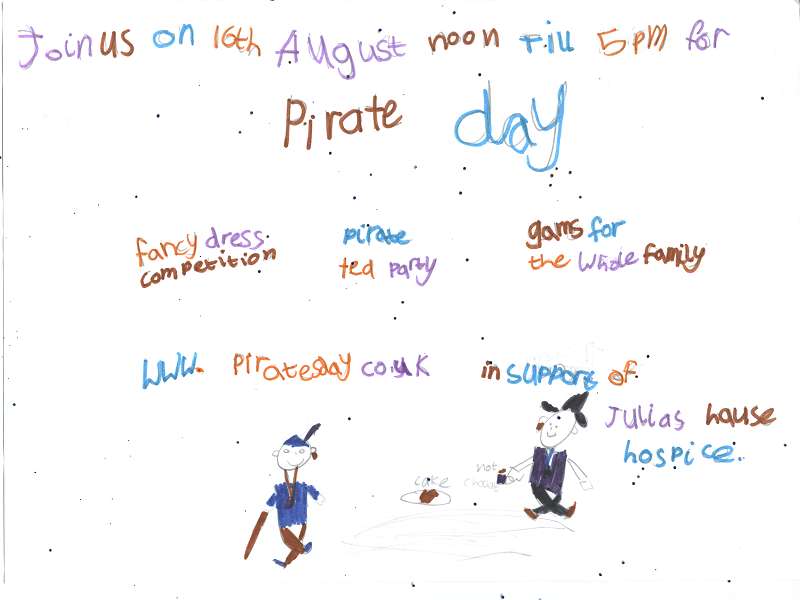 Join us on 16th August noon till 5pm for
Pirate day
fancy dress
competition
pirate
ted party
gams for
the whole family
www. piratesday co.uk
in support of
Julias hause
hospice.
cake
not